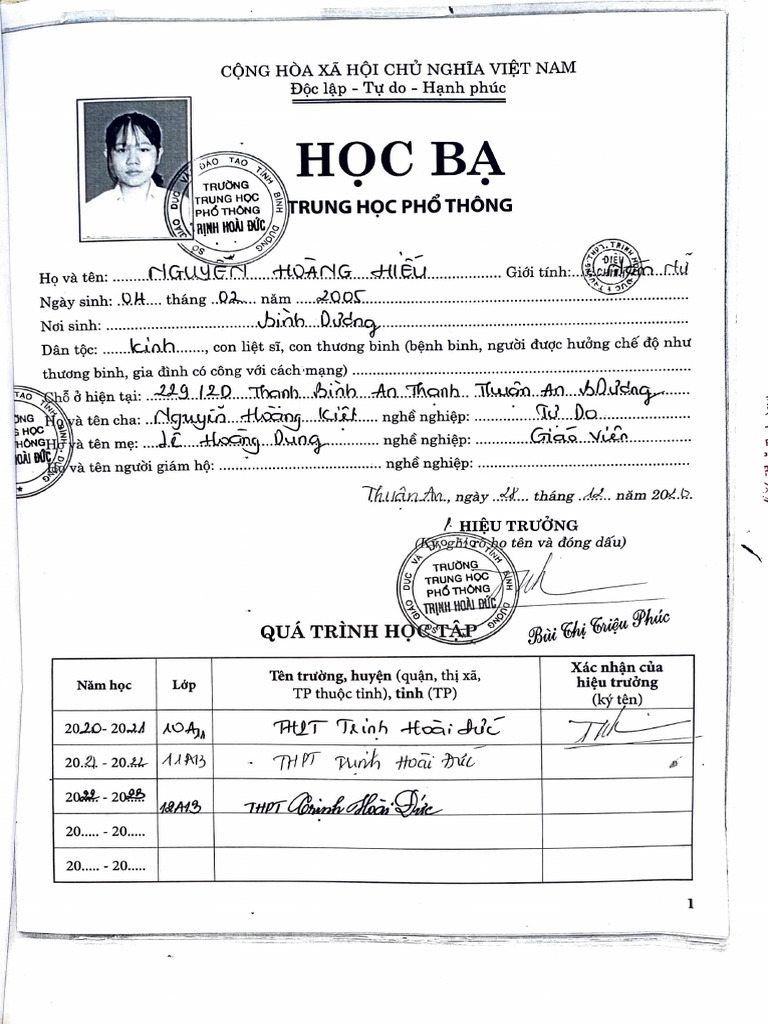 CỘNG HÒA XÃ HỘI CHỦ NGHĨA VIỆT NAM
Độc lập - Tự do - Hạnh phúc
HỌC BẠ
TRUNG HỌC PHỔ THÔNG
SỞ GIÁO DỤC VÀ ĐÀO TẠO TỈNH BÌNH DƯƠNG
TRƯỜNG
TRUNG HỌC
PHỔ THÔNG
TRỊNH HOÀI ĐỨC
Họ và tên: NGUYỄN HOÀNG HIẾU Giới tính: Nữ
Ngày sinh: 04 tháng 02 năm 2005
Nơi sinh: Bình Dương
Dân tộc: Kinh, con liệt sĩ, con thương binh (bệnh binh, người được hưởng chế độ như
thương binh, gia đình có công với cách mạng)
Chỗ ở hiện tại: 229/2D Thanh Bình An Thạnh Thuận An BDương
Họ và tên cha: Nguyễn Hoàng Kiệt nghề nghiệp: Tự Do
Họ và tên mẹ: Lê Hoàng Dung nghề nghiệp: Giáo Viên
Họ và tên người giám hộ: nghề nghiệp:
Thuận An, ngày 28 tháng 12 năm 2020.
HIỆU TRƯỞNG
(Ký, ghi rõ họ tên và đóng dấu)
TRƯỜNG
TRUNG HỌC
PHỔ THÔNG
TRỊNH HOÀI ĐỨC
Bùi Thị Triệu Phúc
QUÁ TRÌNH HỌC TẬP
Năm học Lớp Tên trường, huyện (quận, thị xã, TP thuộc tỉnh), tỉnh (TP) Xác nhận của hiệu trưởng (ký tên)
2020 - 2021 THPT Trịnh Hoài Đức
2021 - 2022 11A13 THPT Trịnh Hoài Đức
2022 - 2023 12A13 THPT Trịnh Hoài Đức
20..... - 20.....
20..... - 20.....
1